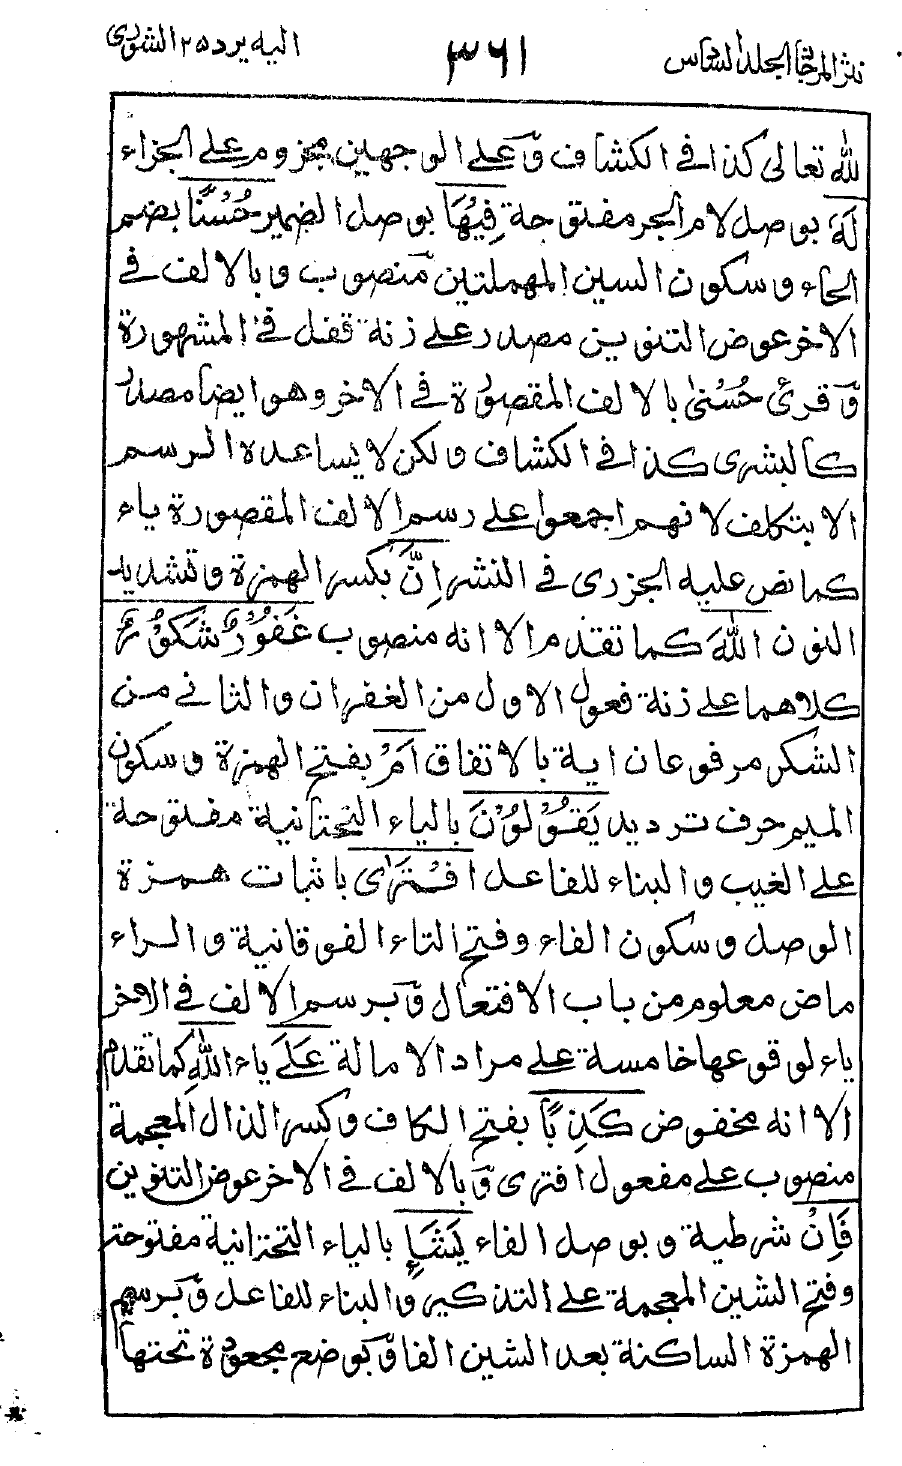 نثر المرجان الجلد السادس ٣٦١ اليه يرد ٢٥ الشورى
لله تعالى كذا في الكشاف وعلى الوجهين مجزوم على الجزاء
لَهٗ بوصل لام الجر مفتوحة فِيْهَا بوصل الضمير حُسْنًا بضم
الحاء وسكون السين المهملتين منصوب وبالالف في
الاخر عوض التنوين مصدر على زنة قفل في المشهورة
وقرئ حُسْنىٰ بالالف المقصورة في الاخر وهو ايضا مصدر
كالبشرى كذا في الكشاف ولكن لا يساعده الرسم
الا بتكلف لانهم اجمعوا على رسم الالف المقصورة ياء
كما نص عليه الجزري في النشر اِنَّ بكسر الهمزة وتشديد
النون اللّٰهَ كما تقدم الا انه منصوب غَفُوْرٌ شَكُوْرٌ
كلاهما على زنة فعول الاول من الغفران والثاني من
الشكر مرفوعان اية بالاتفاق اَمْ بفتح الهمزة وسكون
الميم حرف ترديد يَقُوْلُوْنَ بالياء التحتانية مفتوحة
على الغيب والبناء للفاعل افْتَرٰى باثبات همزة
الوصل وسكون الفاء وفتح التاء الفوقانية والراء
ماض معلوم من باب الافتعال وبرسم الالف في الاخر
ياء لوقوعها خامسة على مراد الامالة عَلَى بالياء اللّٰهِ كما تقدم
الا انه مخفوض كَذِبًا بفتح الكاف وكسر الذال المعجمة
منصوب على مفعول افترى وبالالف في الاخر عوض التنوين
فَاِنْ شرطية وبوصل الفاء يَّشَاِ بالياء التحتانية مفتوحة
وفتح الشين المعجمة على التذكير والبناء للفاعل وبرسم
الهمزة الساكنة بعد الشين الفا وبوضع مجعودة تحتها